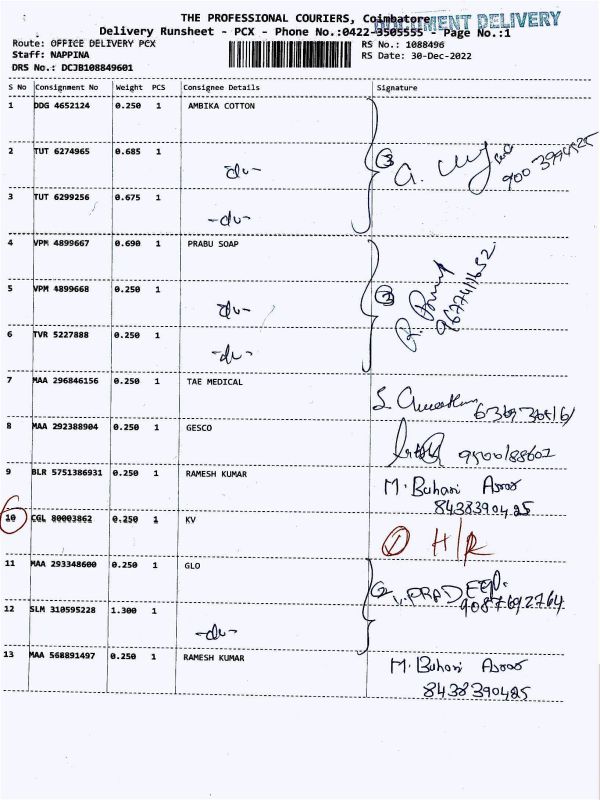 THE PROFESSIONAL COURIERS, Coimbatore
DOCUMENT DELIVERY
Delivery Runsheet - PCX - Phone No.:0422-3505555 - Page No.:1
Route: OFFICE DELIVERY PCX RS No.: 1088496
Staff: NAPPINA RS Date: 30-Dec-2022
DRS No.: DCJB108849601
S No Consignment No Weight PCS Consignee Details Signature
1 DDG 4652124 0.250 1 AMBIKA COTTON
2 TUT 6274965 0.685 1 -do- 3
3 TUT 6299256 0.675 1 -do-
4 VPM 4899667 0.690 1 PRABU SOAP
5 VPM 4899668 0.250 1 -do- 3
6 TVR 5227888 0.250 1 -do-
7 MAA 296846156 0.250 1 TAE MEDICAL
8 MAA 292388904 0.250 1 GESCO 9500188602
9 BLR 5751386931 0.250 1 RAMESH KUMAR M. Buhari
8438390425
10 CGL 80003862 0.250 1 KV 1 H/R
11 MAA 293348600 0.250 1 GLO 2 V. PRADEEP.
9087692764
12 SLM 310595228 1.300 1 -do-
13 MAA 568891497 0.250 1 RAMESH KUMAR M. Buhari
8438390425